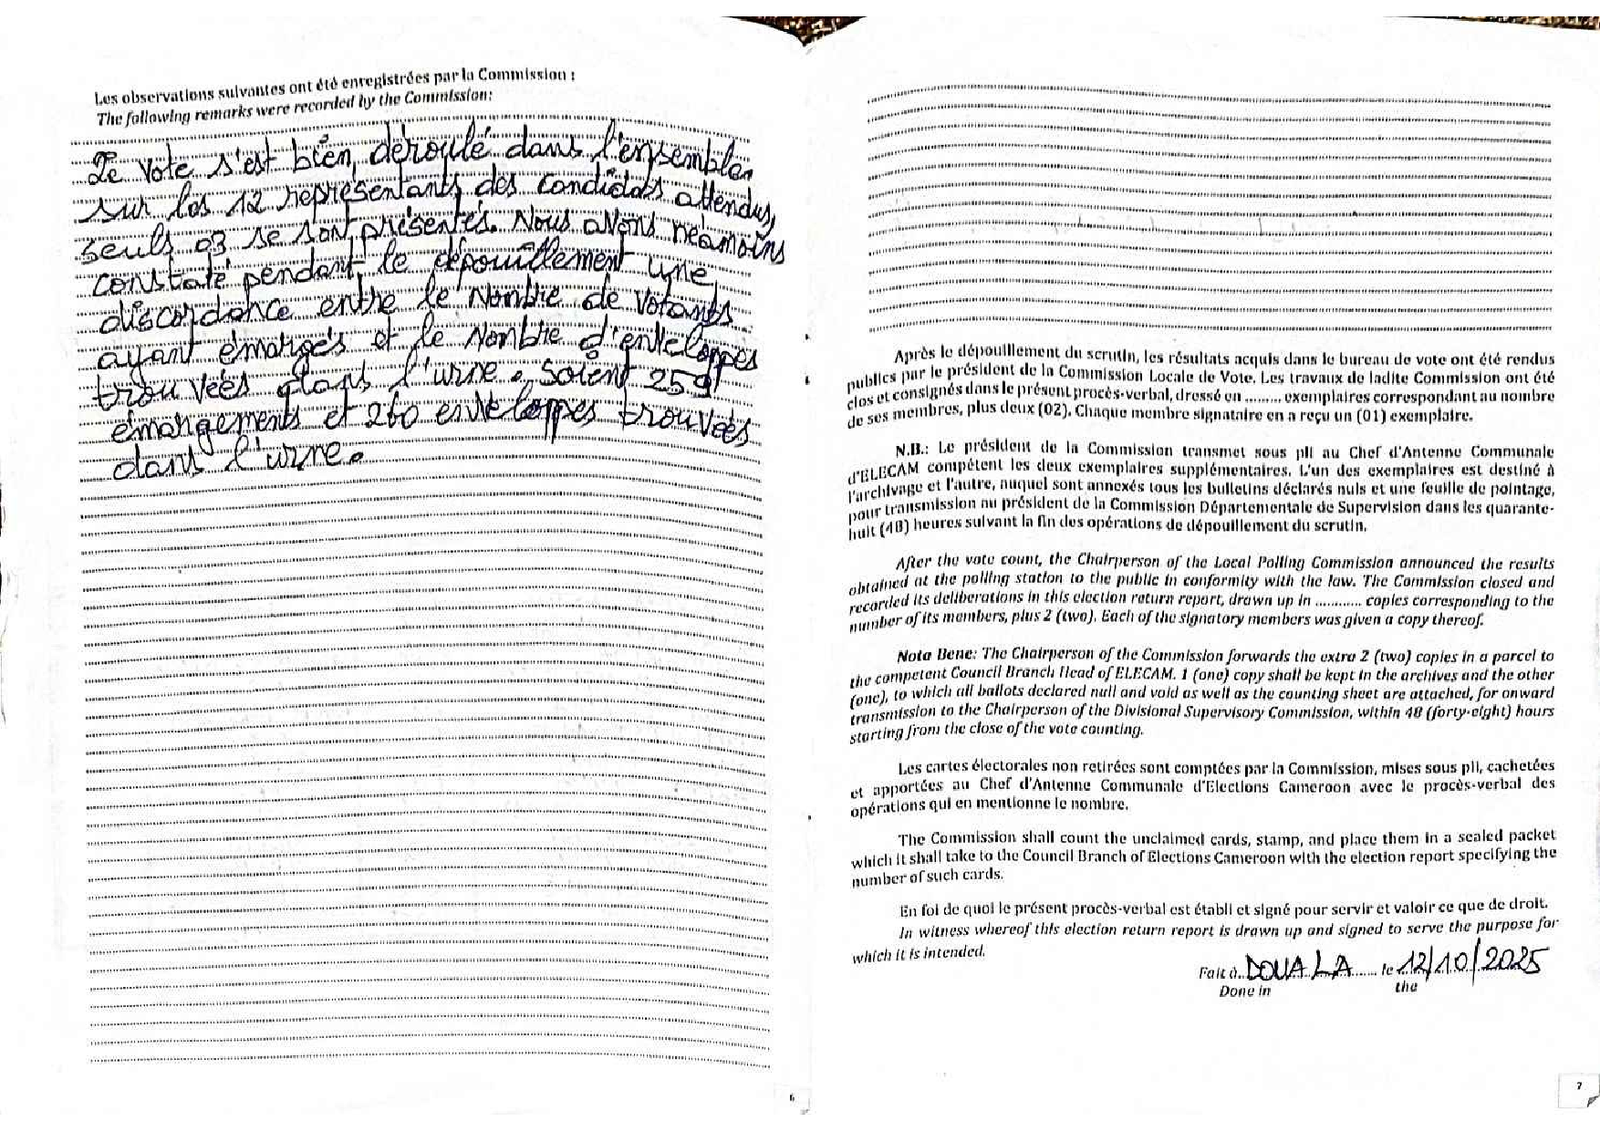 Les observations suivantes ont été enregistrées par la Commission :
The following remarks were recorded by the Commission:
Le vote s'est bien déroulé dans l'ensemble,
sur les 12 représentants des candidats attendus,
seuls 03 se sont présentés. Nous avons néamoins
constaté pendant le dépouillement une
discordance entre le Nombre de Votants
ayant émargés et le Nombre d'enveloppes
trouvées dans l'urne. Soient 259
émargements et 260 enveloppes trouvées
dans l'urne.
6
Après le dépouillement du scrutin, les résultats acquis dans le bureau de vote ont été rendus
publics par le président de la Commission Locale de Vote. Les travaux de ladite Commission ont été
clos et consignés dans le présent procès-verbal, dressé en ......... exemplaires correspondant au nombre
de ses membres, plus deux (02). Chaque membre signataire en a reçu un (01) exemplaire.
N.B.: Le président de la Commission transmet sous pli au Chef d'Antenne Communale
d'ELECAM compétent les deux exemplaires supplémentaires. L'un des exemplaires est destiné à
l'archivage et l'autre, auquel sont annexés tous les bulletins déclarés nuls et une feuille de pointage,
pour transmission au président de la Commission Départementale de Supervision dans les quarante-
huit (48) heures suivant la fin des opérations de dépouillement du scrutin.
After the vote count, the Chairperson of the Local Polling Commission announced the results
obtained at the polling station to the public in conformity with the law. The Commission closed and
recorded its deliberations in this election return report, drawn up in ............ copies corresponding to the
number of its members, plus 2 (two). Each of the signatory members was given a copy thereof.
Nota Bene: The Chairperson of the Commission forwards the extra 2 (two) copies in a parcel to
the competent Council Branch Head of ELECAM. 1 (one) copy shall be kept in the archives and the other
(one), to which all ballots declared null and void as well as the counting sheet are attached, for onward
transmission to the Chairperson of the Divisional Supervisory Commission, within 48 (forty-eight) hours
starting from the close of the vote counting.
Les cartes électorales non retirées sont comptées par la Commission, mises sous pli, cachetées
et apportées au Chef d'Antenne Communale d'Elections Cameroon avec le procès-verbal des
opérations qui en mentionne le nombre.
The Commission shall count the unclaimed cards, stamp, and place them in a sealed packet
which it shall take to the Council Branch of Elections Cameroon with the election report specifying the
number of such cards.
En foi de quoi le présent procès-verbal est établi et signé pour servir et valoir ce que de droit.
In witness whereof this election return report is drawn up and signed to serve the purpose for
which it is intended.
Fait à DOUALA le 12/10/2025
Done in the
7